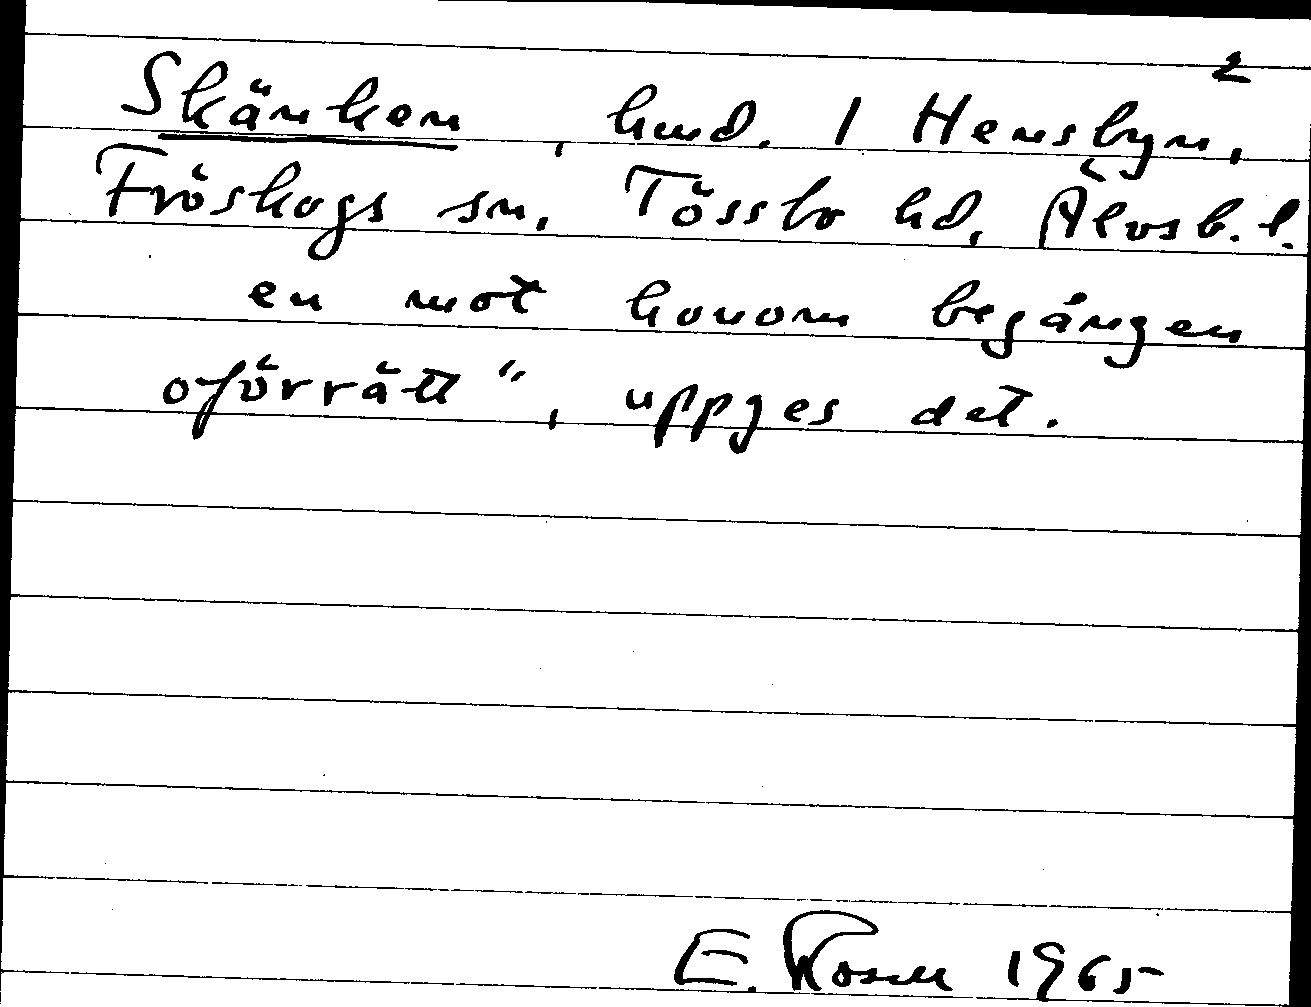 2
Skänken, hmd. 1 Hensbyn,
Fröskogs sn, Tössbo hd, Älvsb. l.
en mot honom begången
oförrätt", uppges det.
E. Rosell 1965